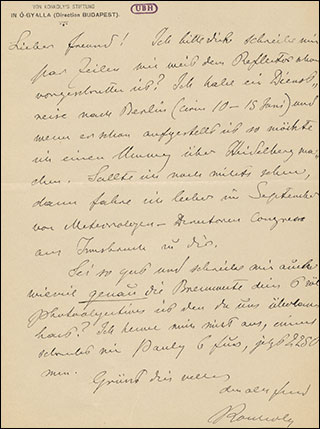 VON KONKOLY'S STIFTUNG
IN Ó-GYALLA (Direction BUDAPEST).
UBH
Lieber Freund! Ich bitte dich schreibe mir
paar Zeilen wie weit dein Reflector schon
vorgeschritten ist? Ich habe ein Dienst
reise nach Berlin (circa 10–15 Juni) und
wenn er schon aufgestellt ist so möchte
ich einen Umweg über Heidelberg ma
chen. Sollte ich noch nichts sehen,
dann fahre ich lieber in September
von Meteorologen-Directoren Congress
aus Innsbruck zu dir.
Sei so gut und schreibe mir auch
wieviel genau die Brennweite des 6
Photoobjectives ist den du uns
hast? Ich kenne mich nicht aus, einmal
schreibt mir Pauly 6 fus, jetzt 2250
mm.
Grüsst dich
dein alter Freund
Konkoly